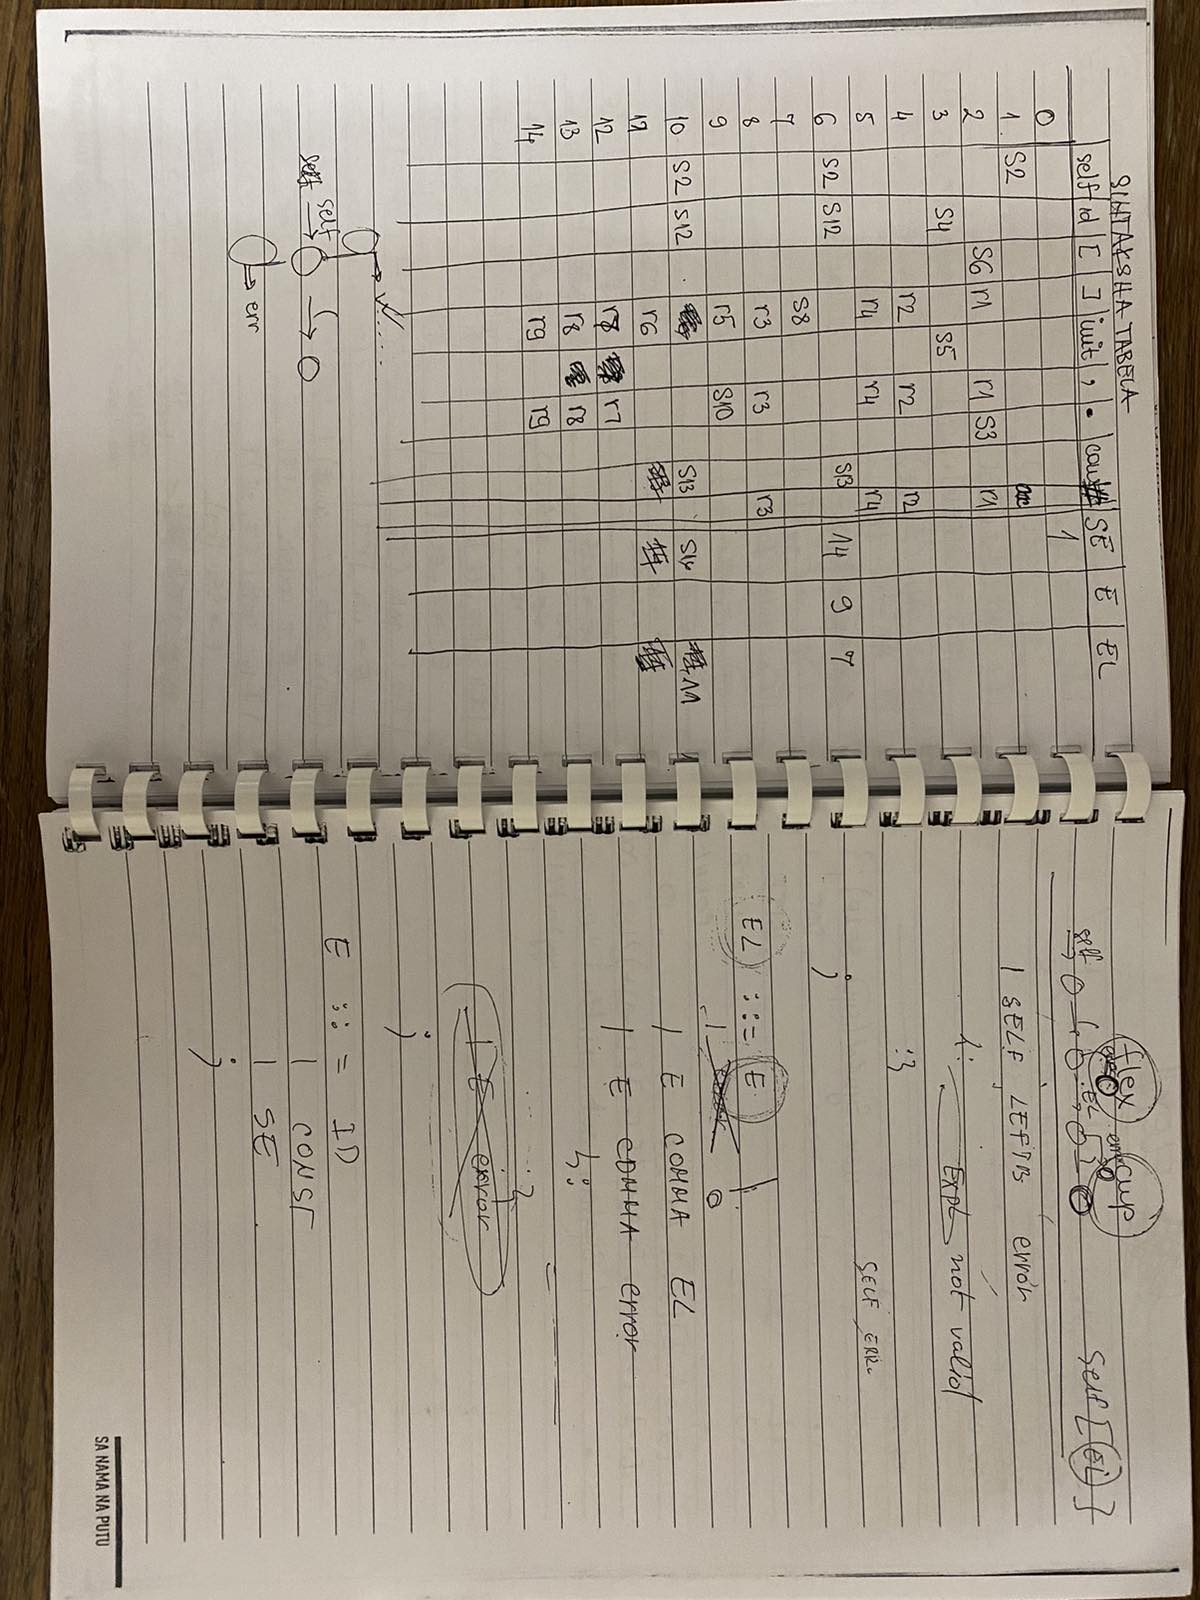 SINTAKSNA TABELA
self id [ ] init , . const # SE E EL
0 S2 1
1 acc
2 S6 r1 r1 S3 r1
3 S4 S5
4 r2 r2 r2
5 r4 r4 r4
6 S2 S12 S13 14 9 7
7 S8
8 r3 r3 r3
9 r5 S10
10 S2 S12 S13 S14 11
11 r6
12 r7
13 r8 r8
14 r9 r9
self
err
flex cup
self EL
self [EL]
| SELF LEFTB error
{: Expl not valid
:}
SELF ERR.
;
EL ::= E
| E COMMA EL
| E COMMA error
{:
:}
| E error
;
E ::= ID
| CONST
| SE
;
SA NAMA NA PUTU